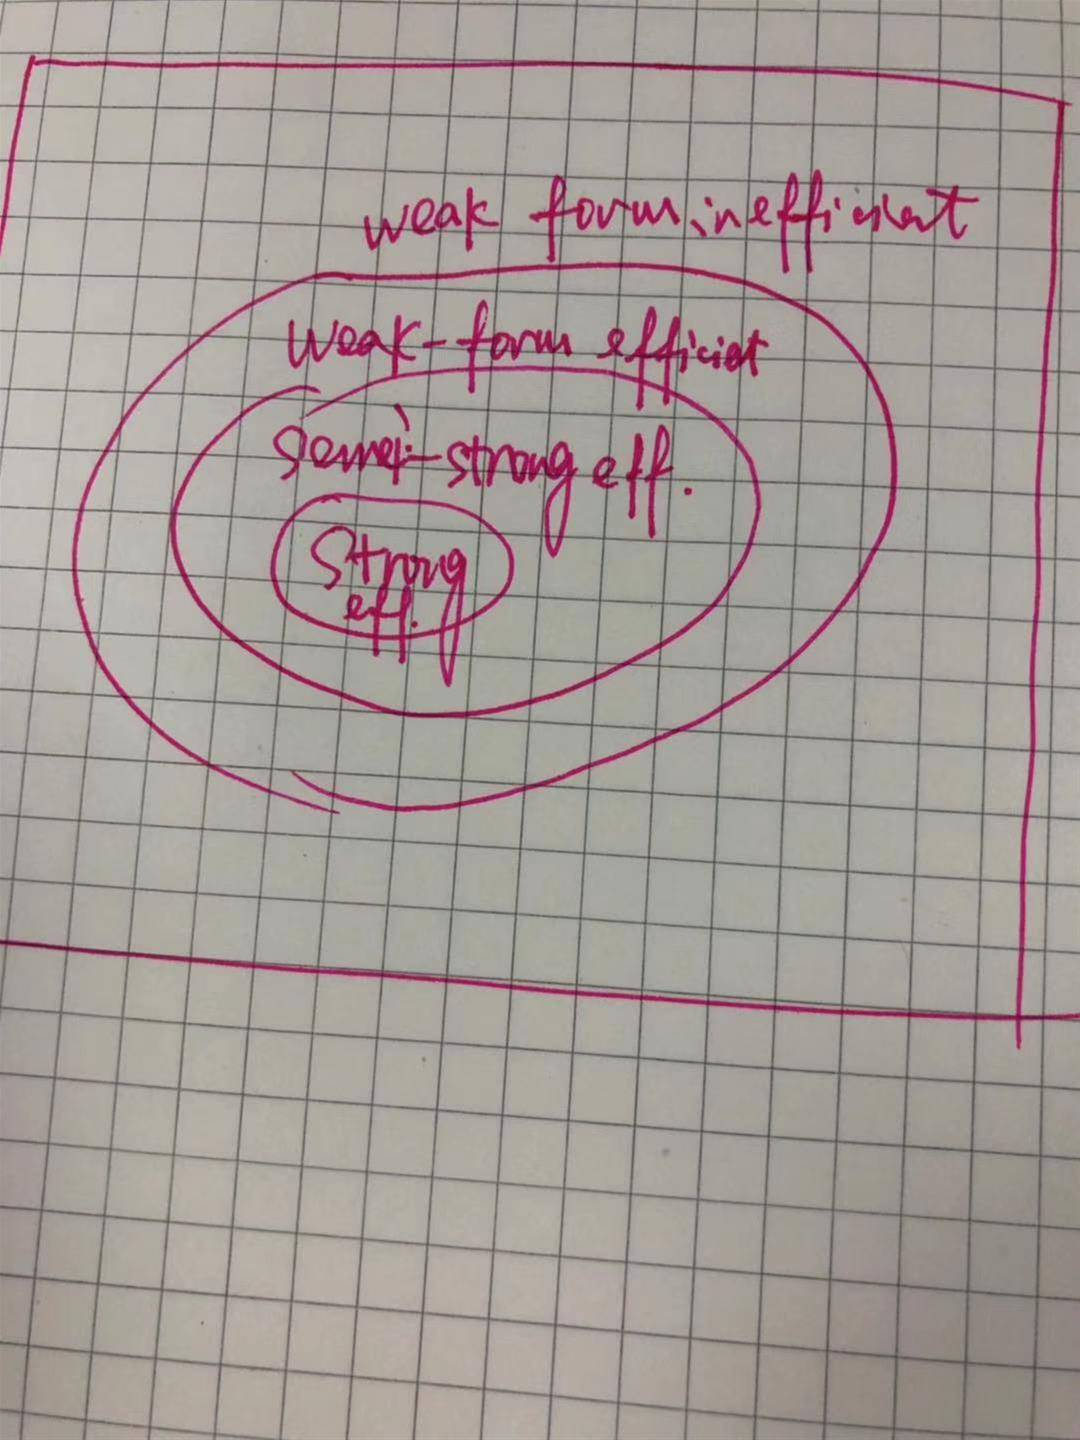 weak form inefficient
Weak-form efficiet
Semi-strong eff.
Strong
eff.